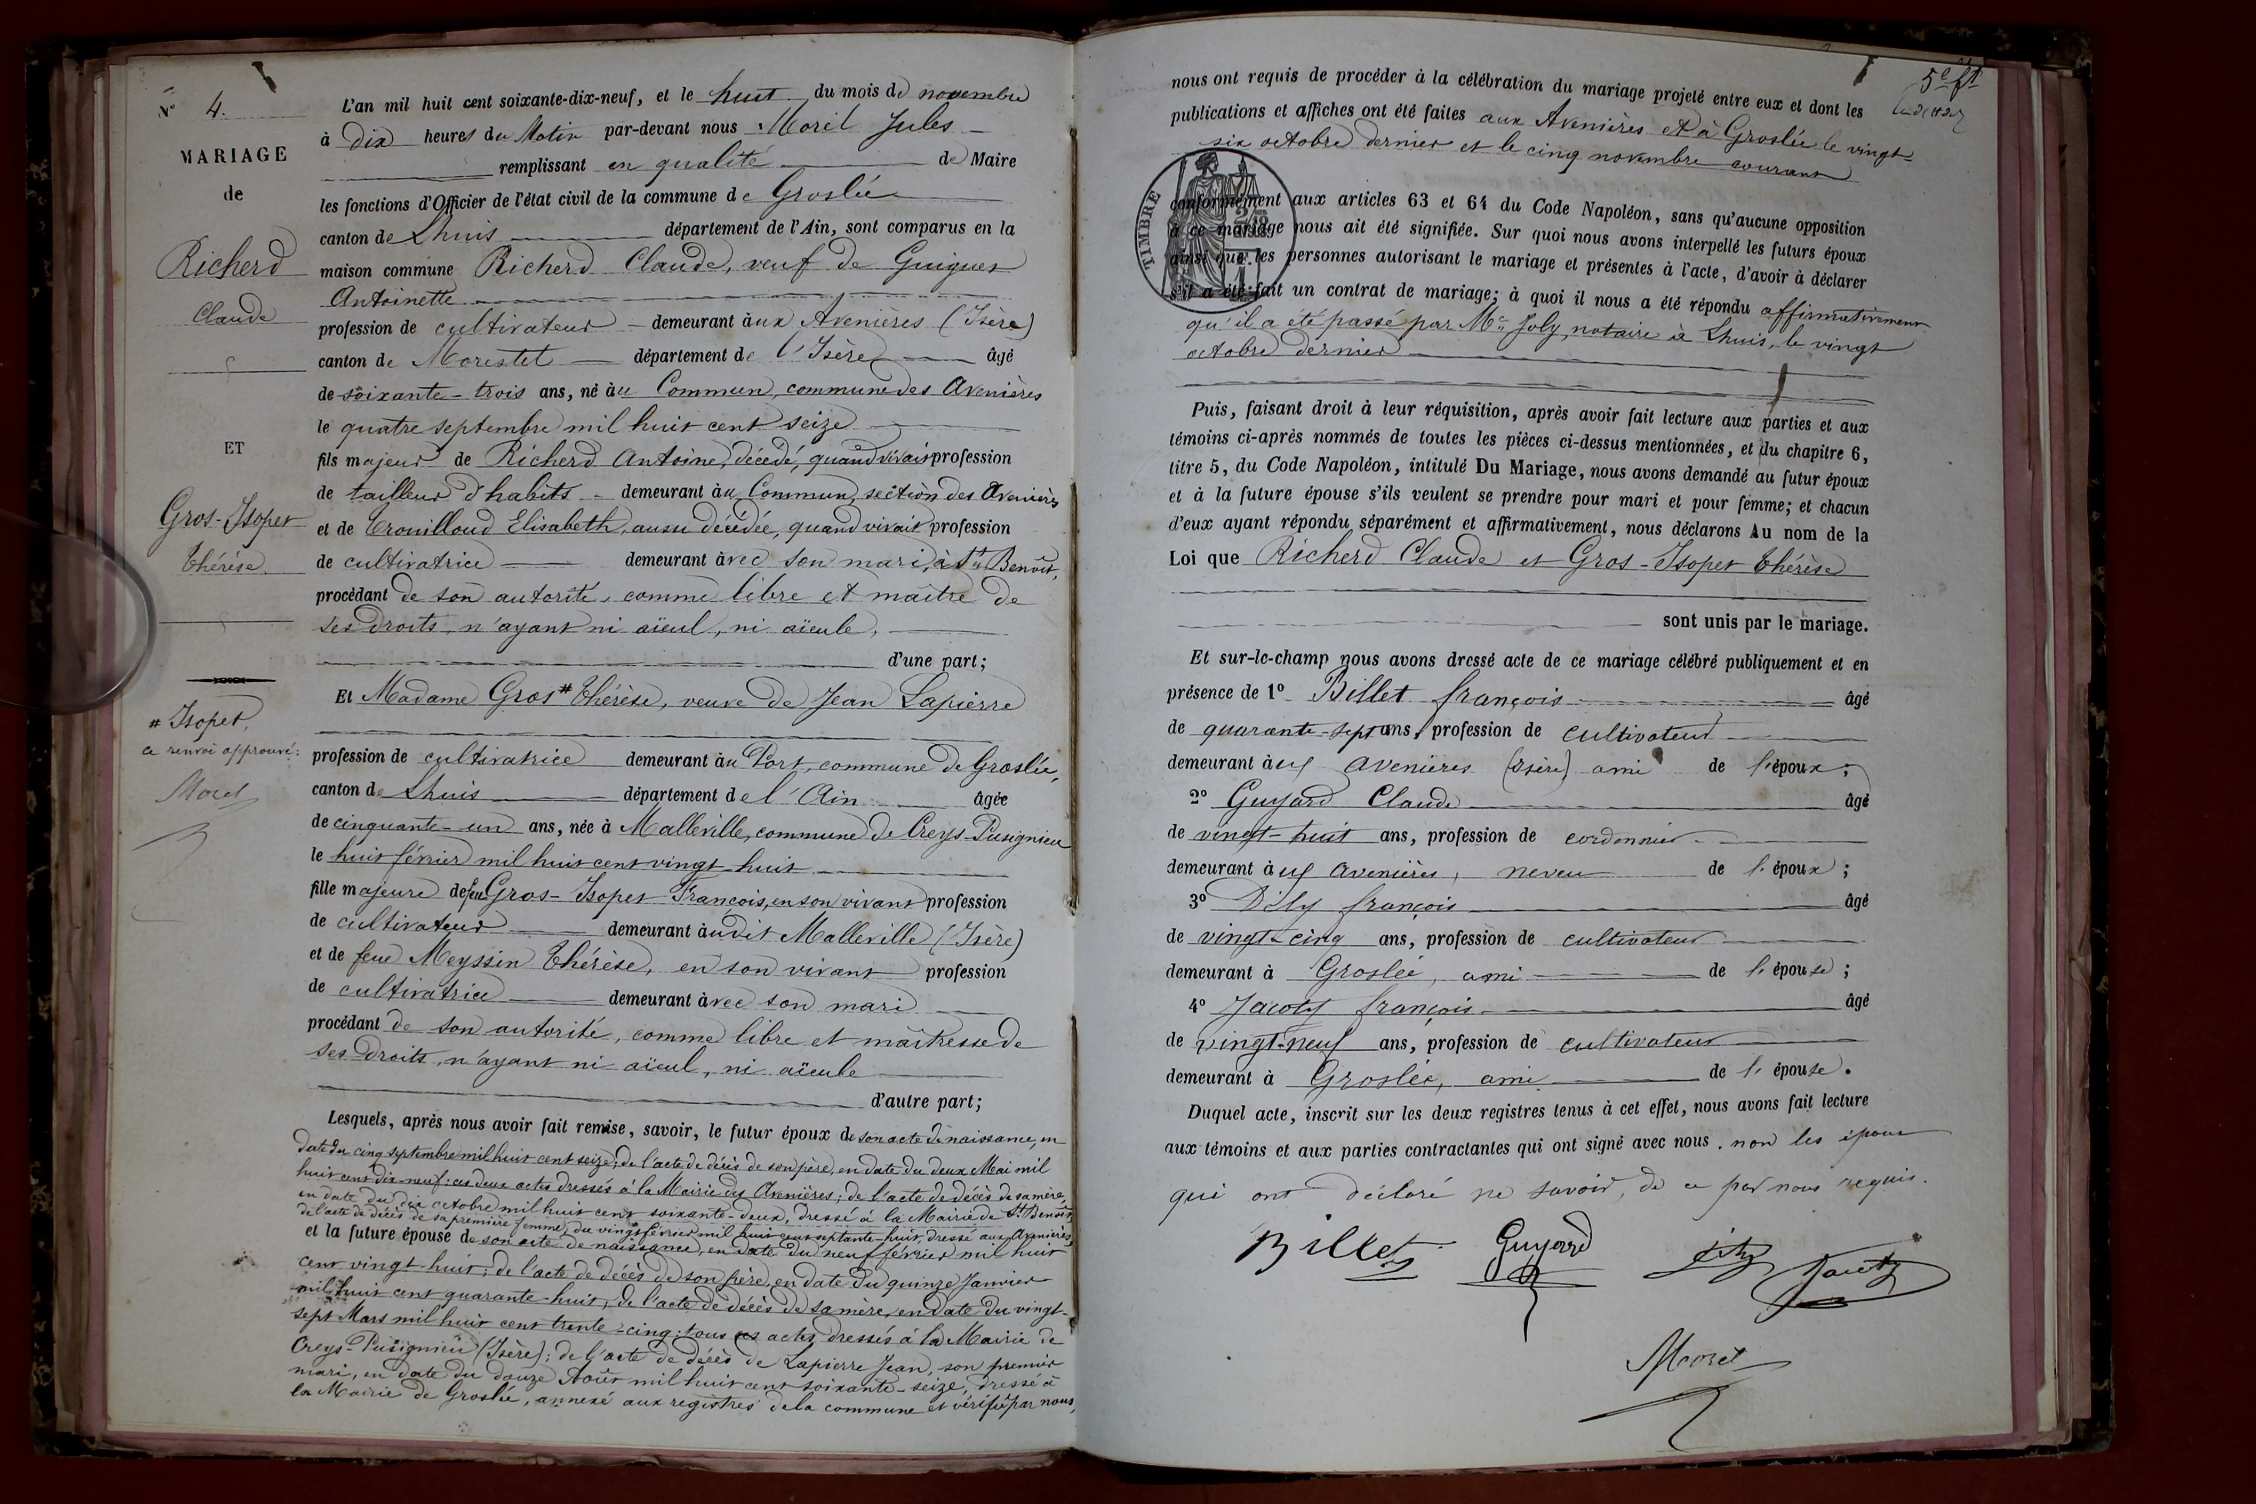 N° 4.
MARIAGE
de
Richerd
Claude
ET
Gros-Isopet
Thérèse.
# Isopet,
ce renvoi approuvé:
Morel
L'an mil huit cent soixante-dix-neuf, et le huit du mois de novembre
à dix heures du Matin par-devant nous Morel Jules
remplissant en qualité de Maire
les fonctions d'Officier de l'état civil de la commune de Groslée
canton de Lhuis département de l'Ain, sont comparus en la
maison commune Richerd Claude, veuf de Guigues
Antoinette
profession de cultivateur demeurant aux Avenières (Isère)
canton de Morestel département de l'Isère âgé
de soixante-trois ans, né au Commun, commune des Avenières
le quatre septembre mil huit cent seize
fils majeur de Richerd Antoine, décédé, quand vivait profession
de tailleur d'habits demeurant au Commun, section des Avenières
et de Trouilloud Elisabeth, aussi décédée, quand vivait profession
de cultivatrice demeurant avec son mari, à St Benoît,
procédant de son autorité, comme libre et maître de
ses droits, n'ayant ni aïeul, ni aïeule,
d'une part;
Et Madame Gros # Thérèse, veuve de Jean Lapierre
profession de cultivatrice demeurant au Port, commune de Groslée,
canton de Lhuis département de l'Ain âgée
de cinquante-un ans, née à Malleville, commune de Creys-Pusignieu
le huit février mil huit cent vingt-huit
fille majeure de feu Gros-Isopet François, en son vivant profession
de cultivateur demeurant audit Malleville (Isère)
et de feue Meyssin Thérèse, en son vivant profession
de cultivatrice demeurant avec son mari
procédant de son autorité, comme libre et maîtresse de
ses droits, n'ayant ni aïeul, ni aïeule
d'autre part;
Lesquels, après nous avoir fait remise, savoir, le futur époux de son acte de naissance, en
date du cinq septembre mil huit cent seize; de l'acte de décès de son père, en date du deux Mai mil
huit cent dix-neuf: ces deux actes dressés à la Mairie des Avenières; de l'acte de décès de sa mère,
en date du dix octobre mil huit cent soixante-deux, dressé à la Mairie de St Benoît,
de l'acte de décès de sa première femme, du vingt février mil huit cent septante-huit, dressé aux Avenières,
et la future épouse de son acte de naissance, en date du neuf février mil huit
cent vingt-huit; de l'acte de décès de son père, en date du quinze Janvier
mil huit cent quarante-huit, de l'acte de décès de sa mère, en date du vingt-
sept Mars mil huit cent trente-cinq: tous ces actes dressés à la Mairie de
Creys-Pusignieu (Isère); de l'acte de décès de Lapierre Jean, son premier
mari, en date du douze Août mil huit cent soixante-seize, dressé à
la Mairie de Groslée, annexé aux registres de la commune et vérifié par nous,
nous ont requis de procéder à la célébration du mariage projeté entre eux et dont les
publications et affiches ont été faites aux Avenières et à Groslée le vingt-
six octobre dernier et le cinq novembre courant
TIMBRE
conformément aux articles 63 et 64 du Code Napoléon, sans qu'aucune opposition
à ce mariage nous ait été signifiée. Sur quoi nous avons interpellé les futurs époux
ainsi que les personnes autorisant le mariage et présentes à l'acte, d'avoir à déclarer
s'il a été fait un contrat de mariage; à quoi il nous a été répondu affirmativement
qu'il a été passé par Me Joly, notaire à Lhuis, le vingt
octobre dernier
Puis, faisant droit à leur réquisition, après avoir fait lecture aux parties et aux
témoins ci-après nommés de toutes les pièces ci-dessus mentionnées, et du chapitre 6,
titre 5, du Code Napoléon, intitulé Du Mariage, nous avons demandé au futur époux
et à la future épouse s'ils veulent se prendre pour mari et pour femme; et chacun
d'eux ayant répondu séparément et affirmativement, nous déclarons Au nom de la
Loi que Richerd Claude et Gros-Isopet Thérèse
sont unis par le mariage.
Et sur-le-champ nous avons dressé acte de ce mariage célébré publiquement et en
présence de 1° Billet françois âgé
de quarante-sept ans, profession de cultivateur
demeurant aux avenières (Isère) ami de l'époux;
2° Guyard Claude âgé
de vingt-huit ans, profession de cordonnier
demeurant aux avenières, neveu de l'époux;
3° françois âgé
de vingt-cinq ans, profession de cultivateur
demeurant à Groslée, ami de l'épouse;
4° françois âgé
de vingt-neuf ans, profession de cultivateur
demeurant à Groslée, ami de l'épouse.
Duquel acte, inscrit sur les deux registres tenus à cet effet, nous avons fait lecture
aux témoins et aux parties contractantes qui ont signé avec nous. non les époux
qui ont déclaré ne savoir, de ce par nous requis.
Billet Guyard
Morel